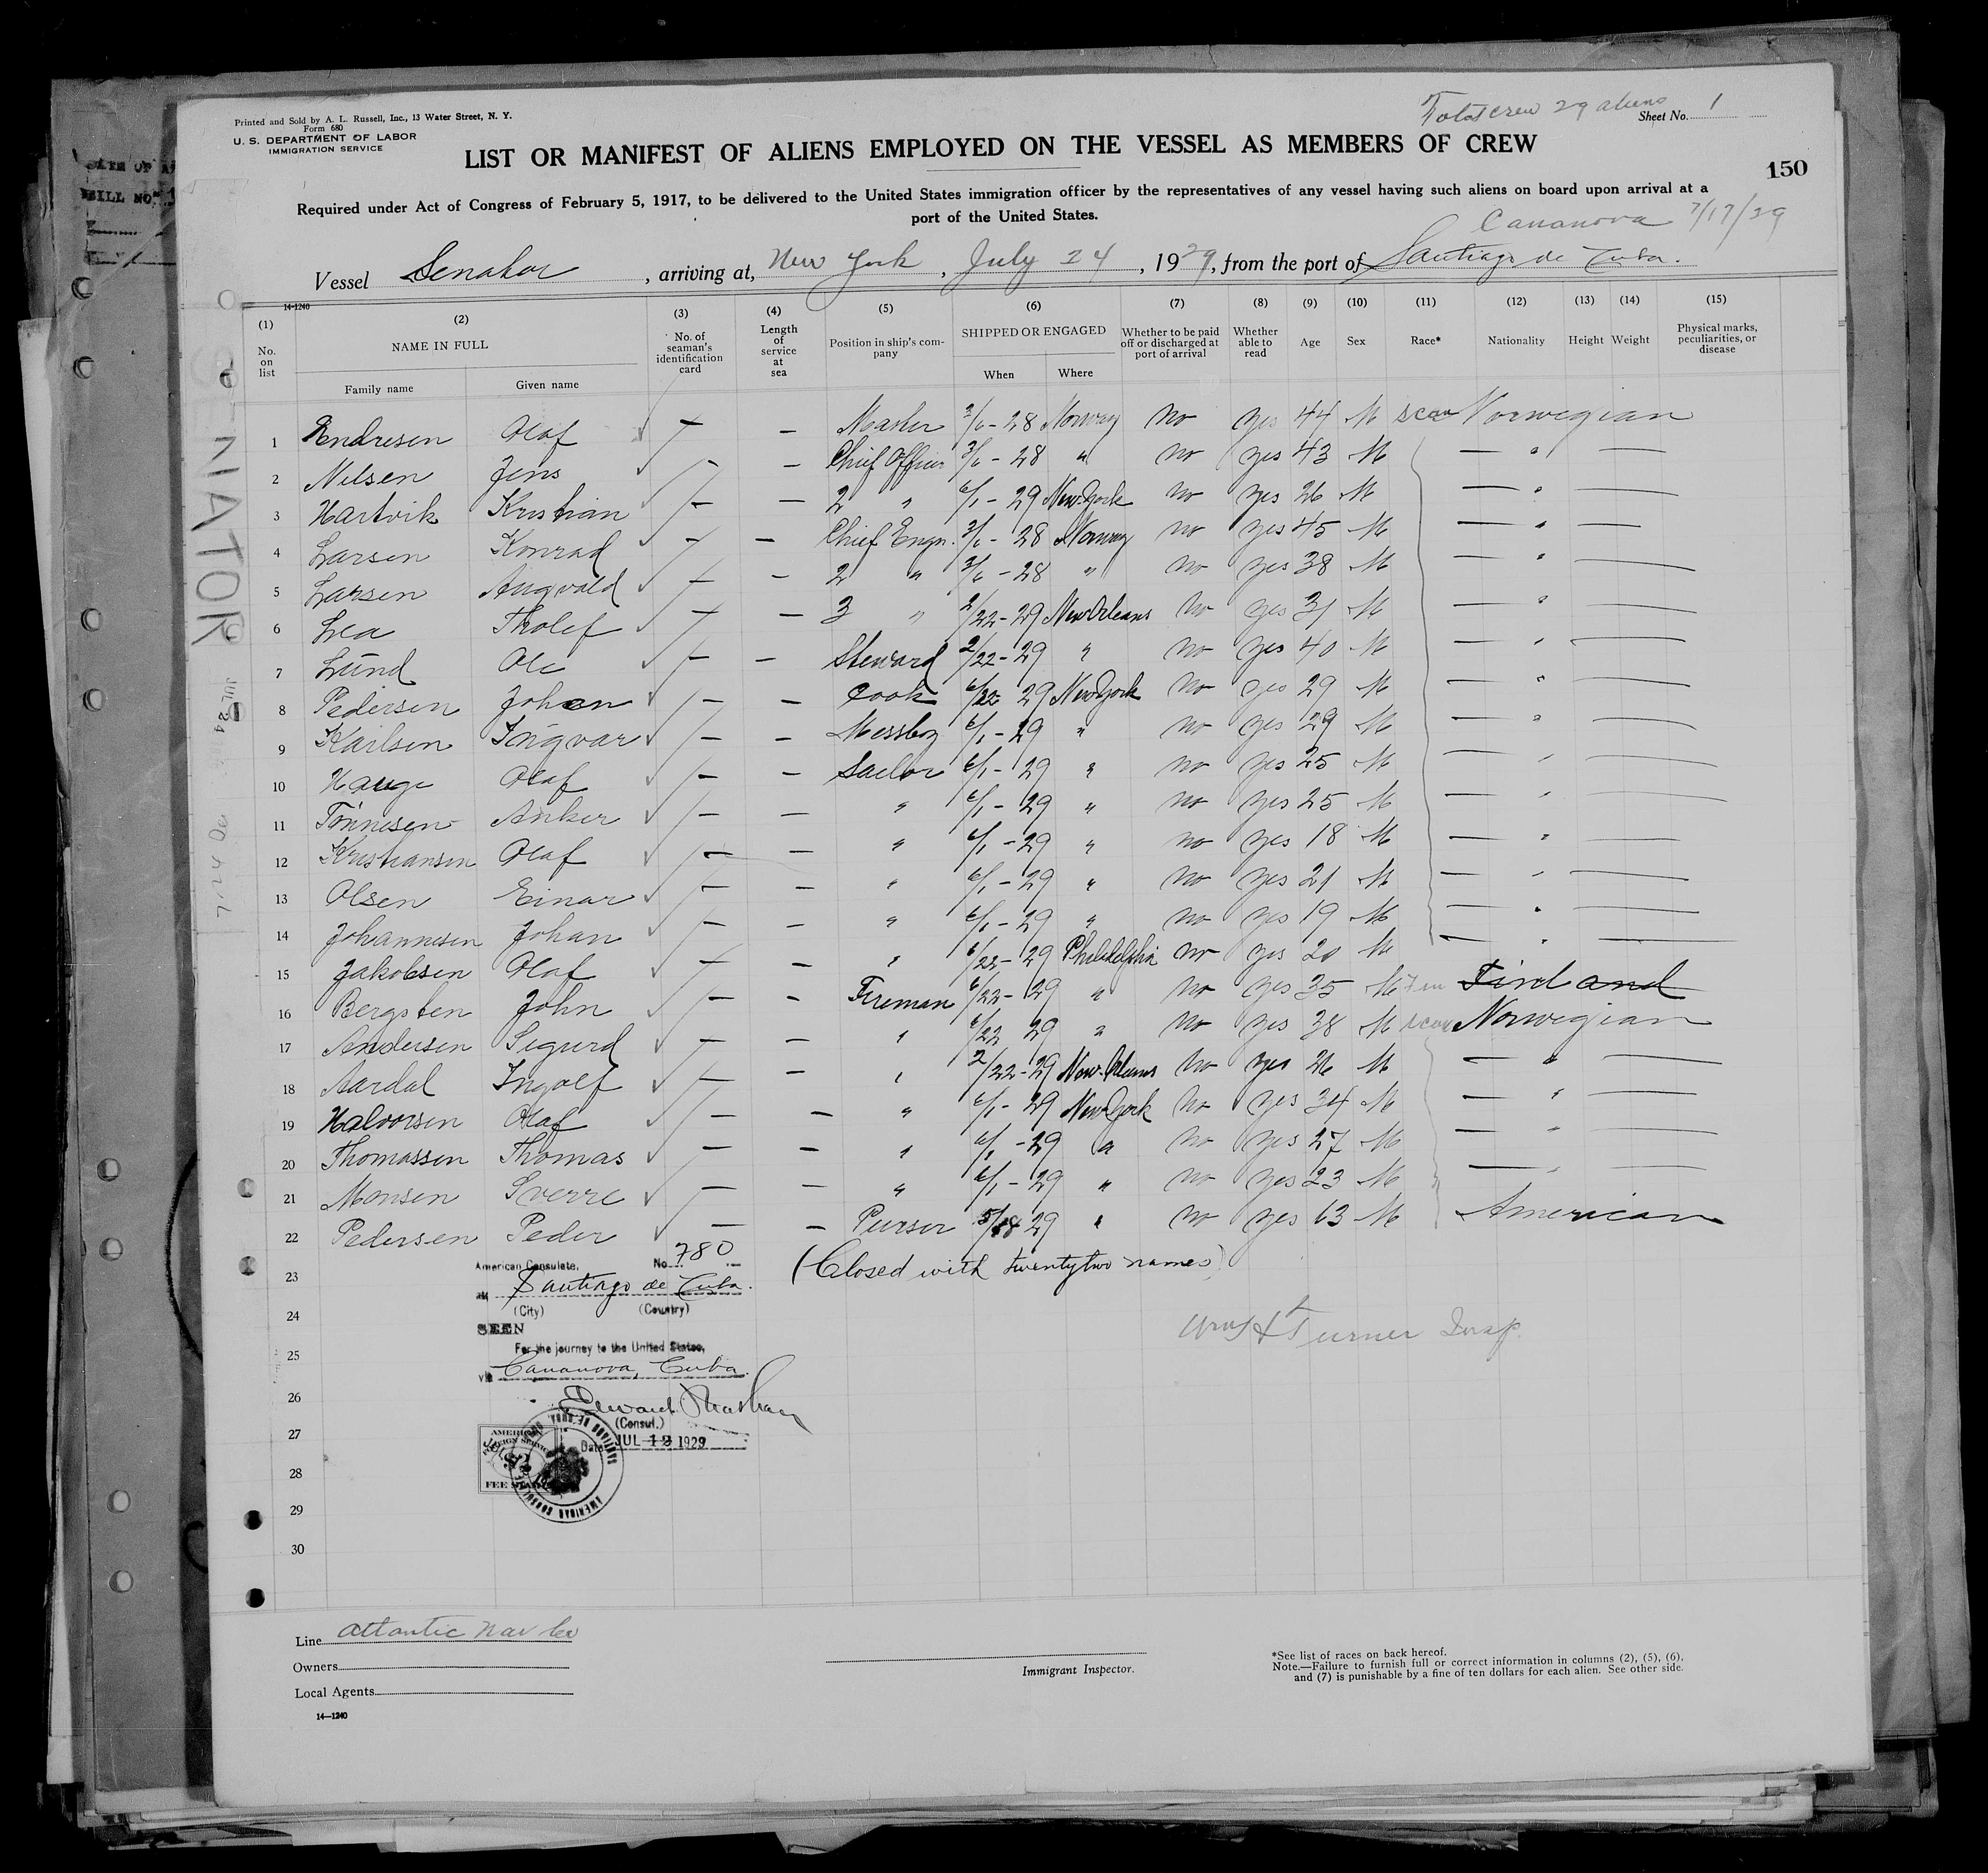 Printed and Sold by A. L. Russell, Inc., 13 Water Street, N. Y.
Form 680
U. S. DEPARTMENT OF LABOR
IMMIGRATION SERVICE
Total crew 29 aliens
Sheet No. 1
LIST OR MANIFEST OF ALIENS EMPLOYED ON THE VESSEL AS MEMBERS OF CREW
150
Required under Act of Congress of February 5, 1917, to be delivered to the United States immigration officer by the representatives of any vessel having such aliens on board upon arrival at a
port of the United States.
Cananova 7/17/29
Vessel Senator, arriving at, New York, July 24, 1929, from the port of Santiago de Cuba.
14-1240
(1) (2) (3) (4) (5) (6) (7) (8) (9) (10) (11) (12) (13) (14) (15)
No. on list NAME IN FULL No. of seaman's identification card Length of service at sea Position in ship's company SHIPPED OR ENGAGED Whether to be paid off or discharged at port of arrival Whether able to read Age Sex Race* Nationality Height Weight Physical marks, peculiarities, or disease
Family name Given name When Where
1 Endresen Olaf — — Master 3/6-28 Norway no yes 44 M scan Norwegian
2 Nilsen Jens — — Chief Officer 3/6-28 " no yes 43 M — " —
3 Hartvik Kristian — — 2 " 6/1-29 New York no yes 26 M — " —
4 Larsen Konrad — — Chief Engn. 3/6-28 Norway no yes 45 M — " —
5 Larsen Augvald — — 2 " 3/6-28 " no yes 38 M — " —
6 Lea Tholef — — 3 " 2/22-29 New Orleans no yes 31 M — " —
7 Lund Ole — — Steward 2/22-29 " no yes 40 M — " —
8 Pedersen Johan — — Cook 6/22 29 New York no yes 29 M — " —
9 Karlsen Ingvar — — Messboy 6/1-29 " no yes 29 M — " —
10 Hauge Olaf — — Sailor 6/1-29 " no yes 25 M — " —
11 Tönnesen Anker — — " 6/1-29 " no yes 25 M — " —
12 Kristiansen Olaf — — " 6/1-29 " no yes 18 M — " —
13 Olsen Einar — — " 6/1-29 " no yes 21 M — " —
14 Johannesen Johan — — " 6/1-29 " no yes 19 M — " —
15 Jakobsen Olaf — — " 6/22-29 Philadelphia no yes 20 M — " —
16 Bergsten John — — Fireman 6/22-29 " no yes 35 M Fin Finland
17 Andersen Sigurd — — " 6/22 29 " no yes 38 M scan Norwegian
18 Aardal Ingolf — — " 2/22-29 New Orleans no yes 26 M — " —
19 Halvorsen Olaf — — " 6/1-29 New York no yes 34 M — " —
20 Thomassen Thomas — — " 6/1-29 " no yes 27 M — " —
21 Monsen Sverre — — " 6/1-29 " no yes 23 M — " —
22 Pedersen Peder — — Purser 5/28 29 " no yes 63 M American
23 (Closed with twentytwo names)
24
25
26
27
28
29
30
American Consulate, No. 780
at Santiago de Cuba.
(City) (Country)
SEEN
For the journey to the United States,
via Cananova, Cuba.
(Consul.)
Date JUL 12 1929
AMERICAN
FOREIGN SERVICE
FEE STAMP
AMERICAN CONSULATE
SANTIAGO DE CUBA
Turner Insp.
SENATOR
JUL 24
Line Atlantic Nav Co
Owners
Local Agents
14—1240
Immigrant Inspector.
*See list of races on back hereof.
Note.—Failure to furnish full or correct information in columns (2), (5), (6),
and (7) is punishable by a fine of ten dollars for each alien. See other side.